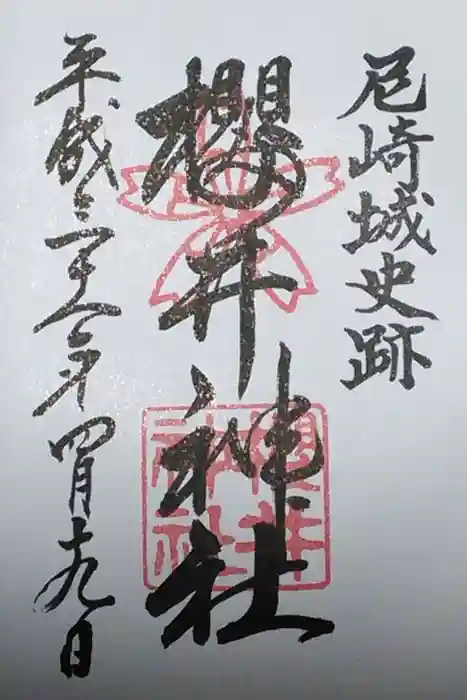 尼崎城史跡
櫻井神社
櫻井
神社
平成三十一年四月十九日